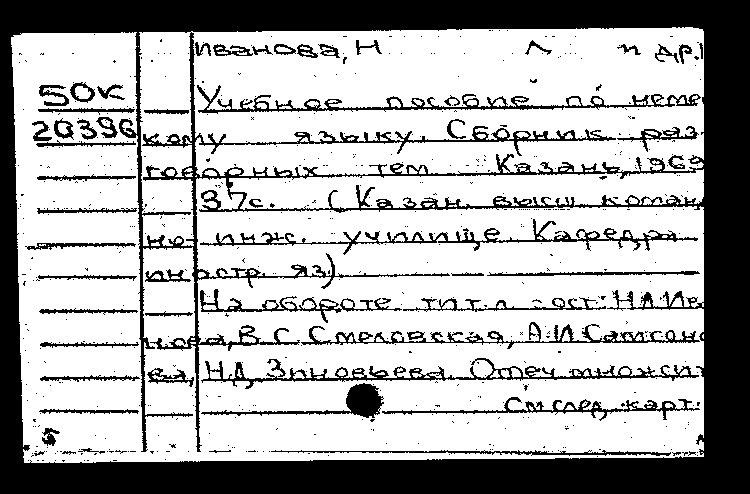 Иванова, Н Л и др.
50К
Учебное пособие по неме
20396
кому языку. Сборник раз-
говорных тем Казань, 1969
37с. (Казан. высш команд
но- инж. училище Кафедра
иностр яз)
На обороте тит.л сост: НЛ Ива
нова, В С Смеловская, А И Самсоно
ва, НД Зиновьева. Отеч множит
См след карт.